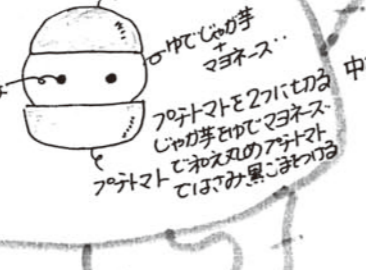 ゆでじゃが芋
+
マヨネーズ‥
プチトマトを2つに切る
じゃが芋をゆでマヨネーズ
で和え丸めプチトマト
ではさみ黒ごまをつける
プチトマト
中